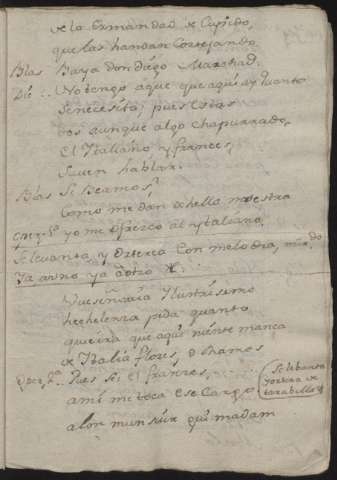 de la Ermandad de Cupido,
que las handan Cortejando
Blas Baya don diego Marchad.
Die.. No tengo aque que aqui ay quanto
se necesita, pues estas
dos aunque algo chapurrado,
El Italiano y frances,
Saven hablar.
Blas Si Beamos,
como me dan dehello muestra
yo me ofrezco al ytaliano.
Se levanta, y
con melodia,
ya a uno ya a otro
Vuesencia Ilustrisimo
hechelenza pida quanto
queira que aqui niente manca
de Italia flores, o Ramos
Pues Si el frances,
ami me toca ese Cargo
Se lebanta
alon munsiur qui madam